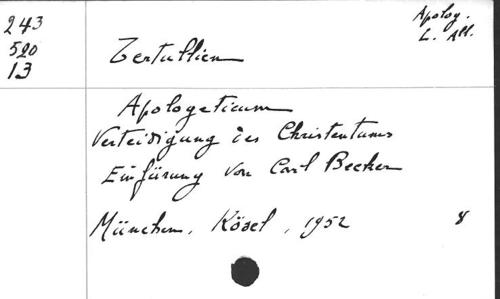 243
520
13
Apolog.
L. All.
Tertullien
Apologeticum
Verteidigung des Christentums
Einfürung von Carl Becker
München, Kösel, 1952
8